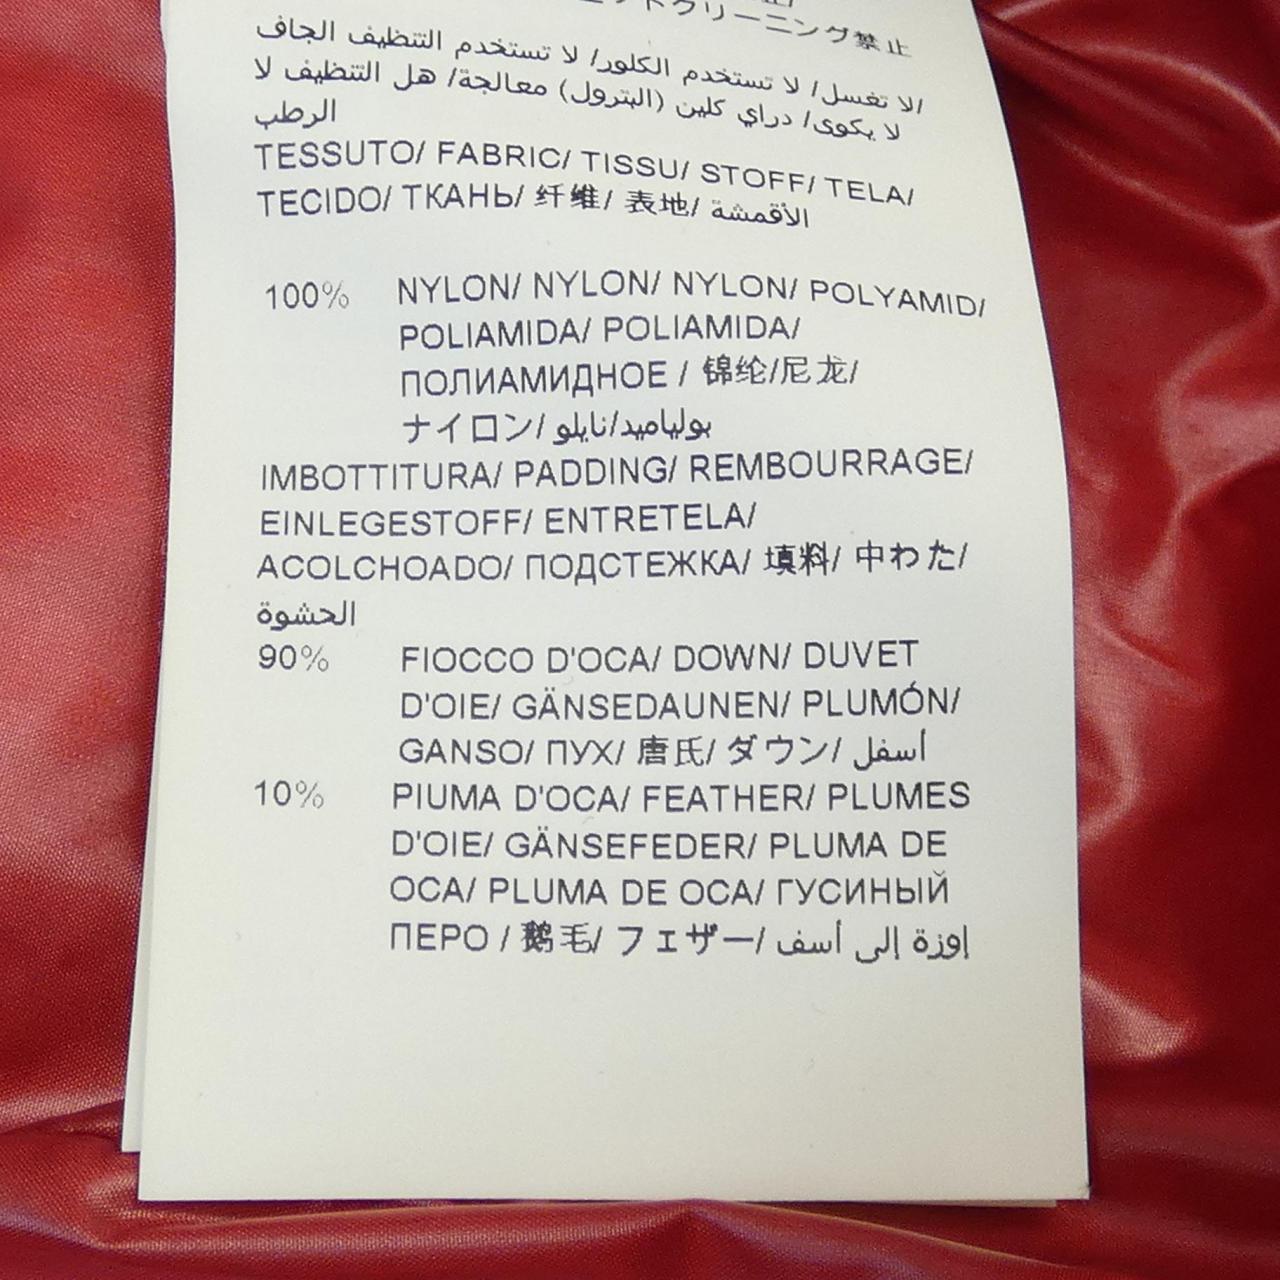 ットクリーニング禁止
لا تغسل/ لا تستخدم الكلور/ لا تستخدم التنظيف الجاف/
لا يكوى/ دراي كلين (البترول) معالجة/ هل التنظيف لا
الرطب
TESSUTO/ FABRIC/ TISSU/ STOFF/ TELA/
TECIDO/ ТКАНЬ/ 纤维/ 表地/ الأقمشة
100% NYLON/ NYLON/ NYLON/ POLYAMID/
POLIAMIDA/ POLIAMIDA/
ПОЛИАМИДНОЕ / 锦纶/尼龙/
ナイロン/ بولياميد/نايلو
IMBOTTITURA/ PADDING/ REMBOURRAGE/
EINLEGESTOFF/ ENTRETELA/
ACOLCHOADO/ ПОДСТЕЖКА/ 填料/ 中わた/
الحشوة
90% FIOCCO D'OCA/ DOWN/ DUVET
D'OIE/ GÄNSEDAUNEN/ PLUMÓN/
GANSO/ ПУХ/ 唐氏/ ダウン/ أسفل
10% PIUMA D'OCA/ FEATHER/ PLUMES
D'OIE/ GÄNSEFEDER/ PLUMA DE
OCA/ PLUMA DE OCA/ ГУСИНЫЙ
ПЕРО / 鹅毛/ フェザー/ إوزة إلى أسف